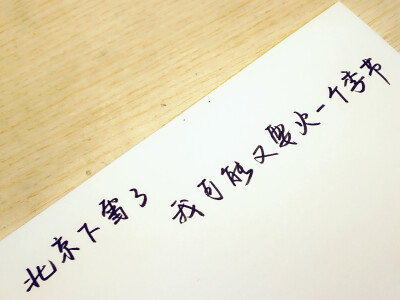 北京下雪了 我可能又要火一个季节